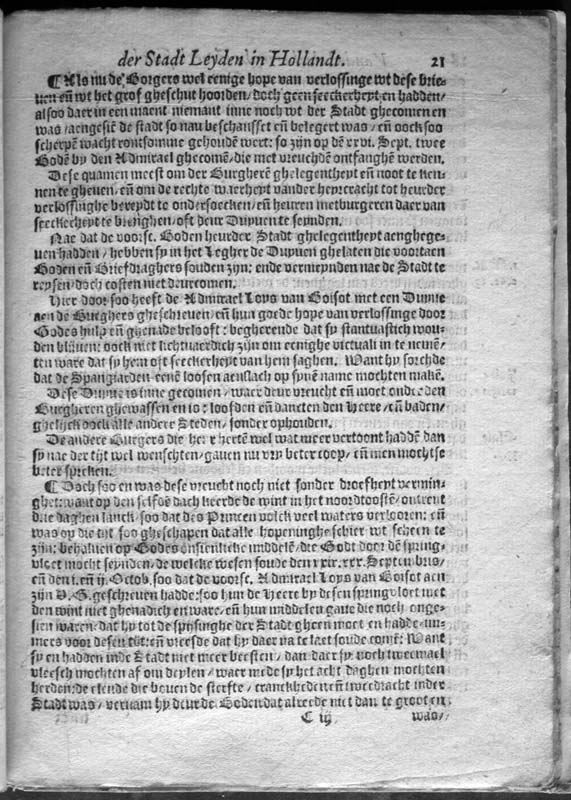 der Stadt Leyden in Hollandt. 21
¶ Als nu de Borgers wel eenige hope van verlossinge wt dese brie-
uen eñ wt het grof gheschut hoorden/ doch geen seeckerheyt en hadden/
alsoo daer in een maent niemant inne noch wt der Stadt ghecomen en
was/ aengesiē de stadt so nau beschansset eñ belegert was/ eñ oock soo
scherpen wacht rontsomme gehoudē wert: so zijn op dē xxvi. Sept. twee
Bodē by den Admirael ghecomē/ die met vreuchdē ontfanghē werden.
Dese quamen meest om der Burgherē ghelegentheyt eñ noot te ken-
nen te gheuen/ eñ om de rechte waerheyt vander heyrcracht tot heurder
verlossinghe bereydt te ondersoecken/ eñ heuren metburgeren daer van
seeckerheyt te brenghen/ oft deur Duyuen te seynden.
Nae dat de voors. Boden heurder Stadt ghelegentheyt aenghege-
uen hadden/ hebben sy in het Legher de Duyuen ghelaten die voortaen
Boden eñ Briefdraghers souden zijn: ende vermeynden nae de Stadt te
reysen/ doch costen niet deurcomen.
Hier door soo heeft de Admirael Loys van Boisot met een Duyue
aen de Burghers gheschreuen/ eñ hun goede hope van verlossinge door
Godes hulp eñ ghenade belooft: begherende dat sy stantuastich wou-
den blijuen: oock niet lichtuaerdich zijn om eenighe victuali in te neuē/
ten ware dat sy hem oft seeckerheyt van hem saghen. Want hy sorchde
dat de Spangiarden eenē loosen aenslach op synē name mochten makē.
Dese Duyue is inne gecomen/ waer deur vreucht eñ moet onder den
Burgheren ghewassen en is: loofden eñ dancten den Heere/ eñ baden/
ghelijck oock alle andere Steden/ sonder ophouden.
De andere Burgers die herr hertē wel wat meer vertoont haddē dan
sy nae der tijt wel wenschten/ gauen nu vry beter coop/ eñ men mochtse
beter spreken.
¶ Doch soo en was dese vreucht noch niet sonder droefheyt vermin-
ghet: want op den selfdē dach keerde de wint in het noordtoostē/ ontrent
drie daghen lanck/ soo dat des Princen volck veel waters verlooren: eñ
was op die tijt soo gheschapen dat alle hopeninghe schier wt scheen te
zijn: behaluen op Godes onsienlicke middelē/ die Godt door dē spring-
vloet mocht seynden/ de welcke wesen soude den xxix. xxx. Septembris/
eñ den i. eñ ij. Octob. soo dat de voors. Admirael Loys van Boisot aen
zijn V. G. geschreuen hadde: soo hun de Heere by desen springvloet met
den wint niet ghenadich en ware/ eñ hun middelen gaue die noch onge-
sien waren/ dat hy tot de spijsinghe der Stadt gheen moet en hadde/ im-
mers voor desen tijt: eñ vreesde dat hy daer na te laet soude comē: Want
sy en hadden inde Stadt niet meer beesten/ dan daer sy noch tweemael
vleesch mochten af om deylen/ waer mede sy het acht daghen mochten
herden: de elende die bouen de sterfte/ cranckheden eñ tweedracht inder
Stadt was/ vernam hy deur de Boden dat alreede niet dan te groot en
C iij was/